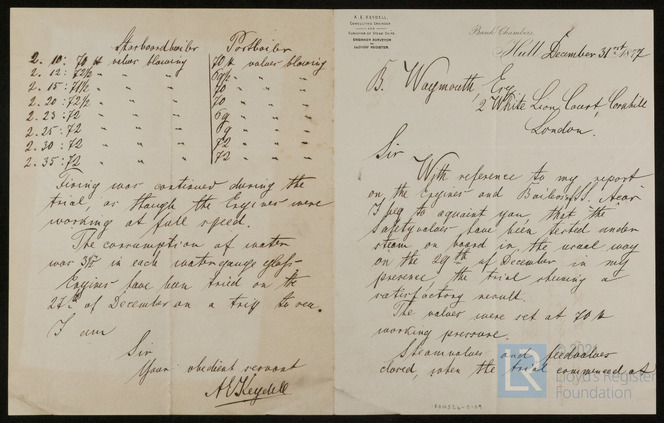 A. E. KEYDELL,
CONSULTING ENGINEER
AND
SURVEYOR OF STEAM SHIPS.
ENGINEER SURVEYOR
TO
LLOYDS' REGISTER.
Bank Chambers,
Hull, December 31st 1877
B. Waymouth, Esq
2 White Lion Court, Cornhill
London.
Sir
With reference to my report
on the Engines and Boilers of S.S.
I beg to aquaint you, that the
Safetyvalves have been tested under
steam on board in the usual way
on the 29th of December in my
presence the trial shewing a
satisfactory result.
The valves were set at 70 lb
working pressure.
Steamvalves and feedvalves
closed, when the trial commenced at
Starboardboiler Portboiler
2. 10: 70 lb valves blowing 70 lb valves blowing
2. 12: 72½ " " " 69½ " "
2. 15: 71½ " " " 70 " "
2. 20: 72½ " " " 70 " "
2. 23: 72 " " " 69 " "
2. 25: 72 " " " 69 " "
2. 30: 72 " " " 72 " "
2. 35: 72 " " " 72 " "
Firing was continued during the
trial, as though the Engines were
working at full speed.
The consumption of water
was in each watergauge glass.
Engines have been tried on the
27th of December on a trip to sea.
I am
Sir
Your obedient servant
A E Keydell
© 2021
LR
Lloyd's Register
Foundation